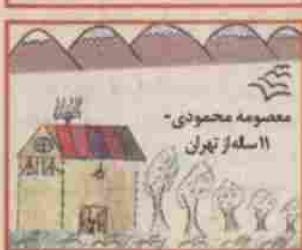 معصومه محمودی-
۱۱ ساله از تهران